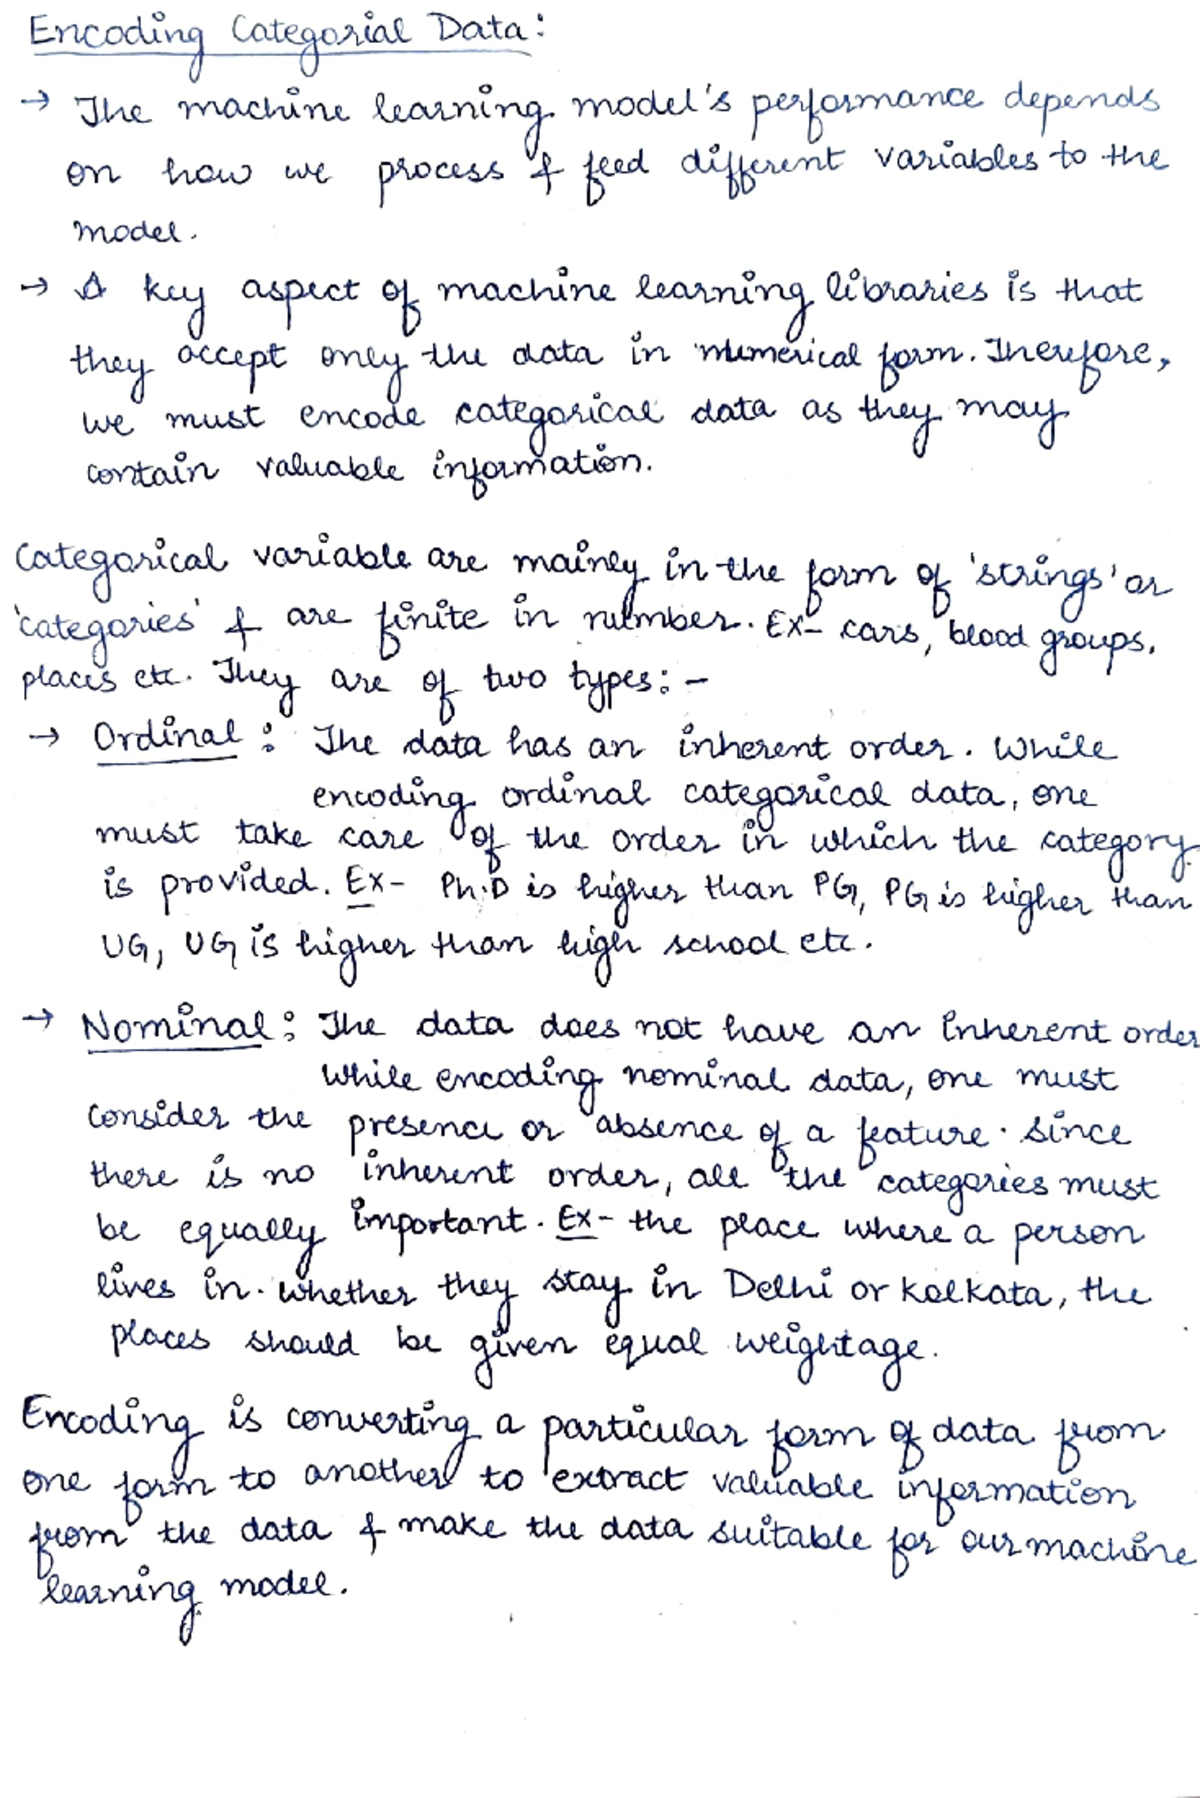 Encoding Categorial Data:
→ The machine learning model's performance depends
on how we process & feed different variables to the
model.
→ A key aspect of machine learning libraries is that
they accept only the data in numerical form. Therefore,
we must encode categorical data as they may
contain valuable information.
Categorical variable are mainly in the form of 'strings' or
'categories' & are finite in number. Ex- cars, blood groups,
places etc. They are of two types:-
→ Ordinal: The data has an inherent order. While
encoding ordinal categorical data, one
must take care of the order in which the category
is provided. Ex- Ph.D is higher than PG, PG is higher than
UG, UG is higher than high school etc.
→ Nominal: The data does not have an inherent order
While encoding nominal data, one must
consider the presence or absence of a feature. Since
there is no inherent order, all the categories must
be equally important. Ex- the place where a person
lives in. Whether they stay in Delhi or Kolkata, the
places should be given equal weightage.
Encoding is converting a particular form of data from
one form to another to extract valuable information
from the data & make the data suitable for our machine
learning model.